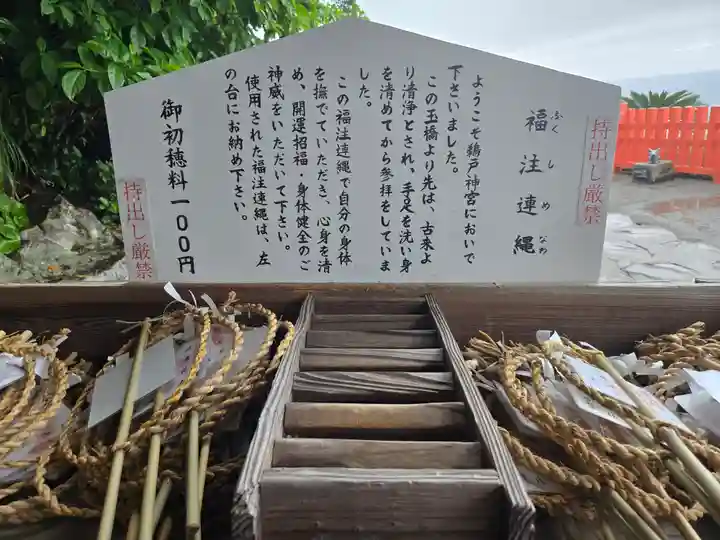 持出し厳禁
福注連縄
ふくしめなわ
ようこそ鵜戸神宮においで
下さいました。
この玉橋より先は、古来よ
り清浄とされ、手足を洗い身
を清めてから参拝をしていま
した。
この福注連縄で自分の身体
を撫でていただき、心身を清
め、開運招福・身体健全のご
神威をいただいて下さい。
使用された福注連縄は、左
の台にお納め下さい。
御初穂料一００円
持出し厳禁